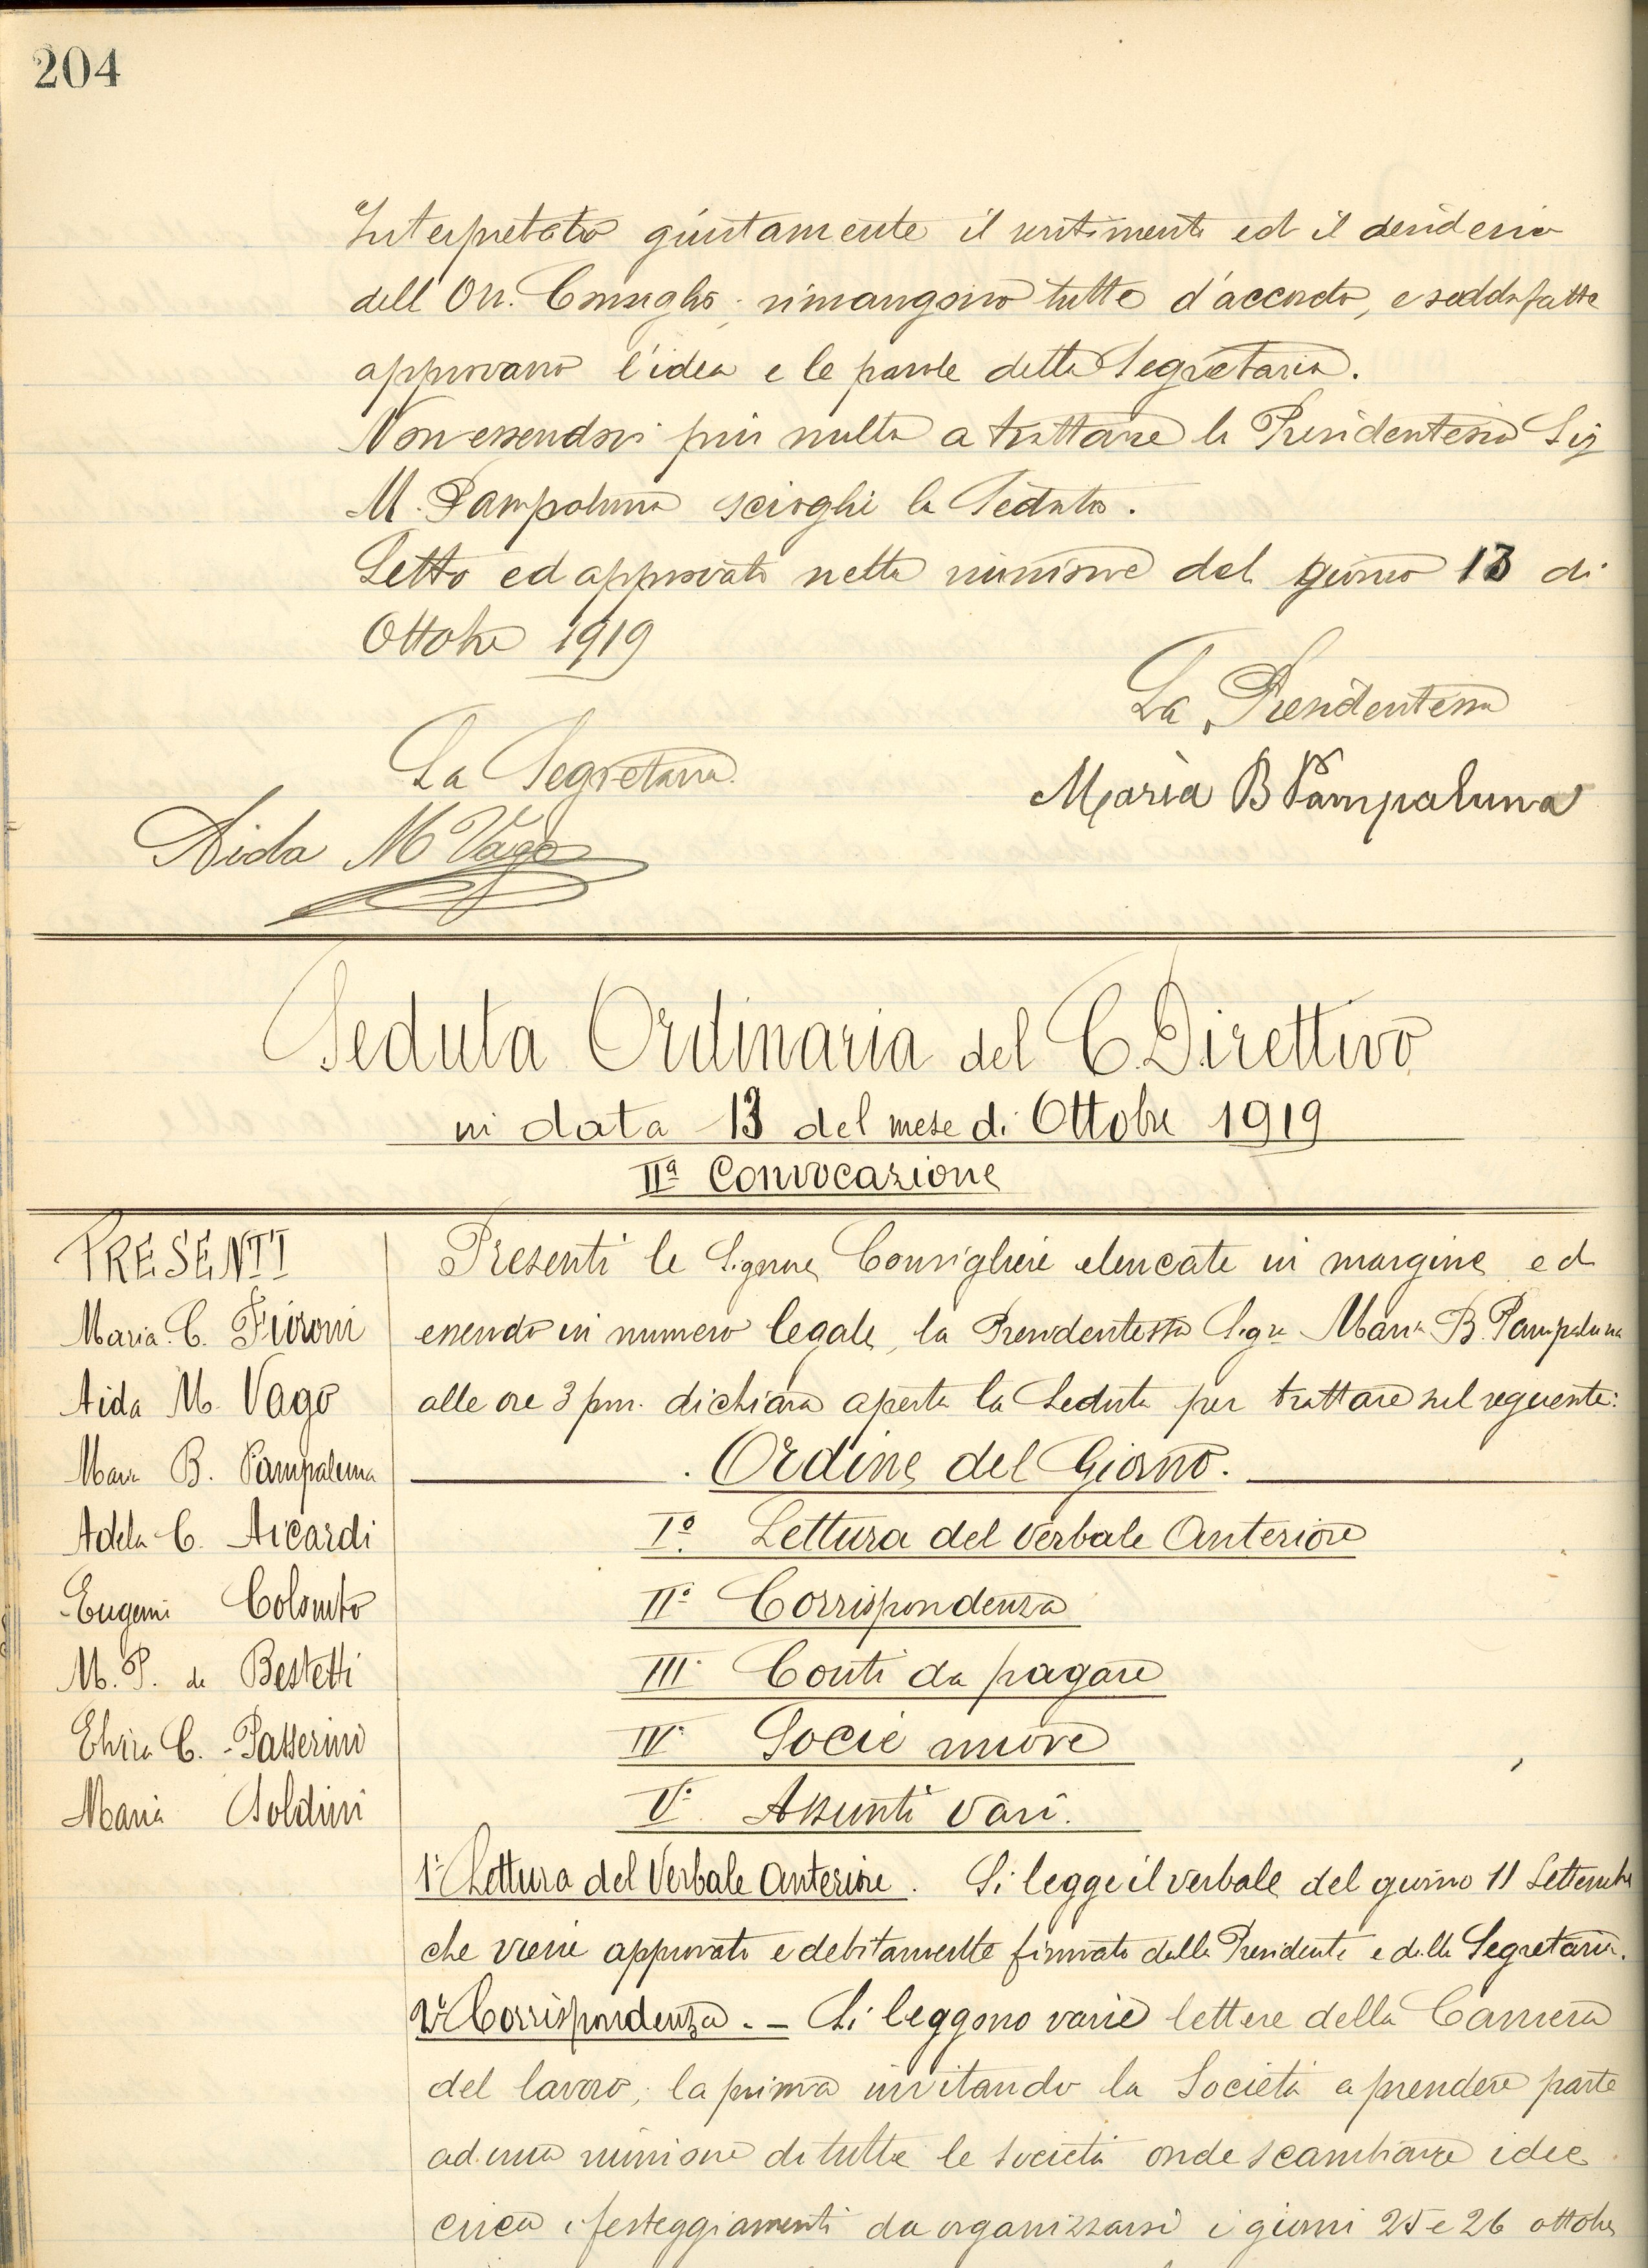 204
Interpretato giustamente il sentimento ed il desiderio
dell'On. Consiglio, rimangono tutte d'accordo, e soddisfatte
approvano l'idea e le parole della Segretaria.
Non essendovi più nulla a trattare la Presidentessa Sig
M. Pampaluna scioglie la Seduta.
Letto ed approvato nella riunione del giorno 13 di
Ottobre 1919
La Presidentessa
Maria B Pampaluna
La Segretaria
Aida M Vago
Seduta Ordinaria del C. Direttivo
in data 13 del mese di Ottobre 1919
IIª Convocazione
PRESENTI
Maria C. Fioroni
Aida M. Vago
Maria B. Pampaluna
Adela C. Aicardi
Eugenia Colombo
M. P. de Bestetti
Elvira C. Passerini
Maria Soldini
Presenti le Signore Consigliere elencate in margine ed
essendo in numero legale, la Presidentessa Sigra Maria B. Pampaluna
alle ore 3 pm. dichiara aperta la Seduta per trattare sul seguente:
. Ordine del Giorno.
Iº Lettura del verbale Anteriore
IIº Corrispondenza
III· Conti da pagare
IV· Socie nuove
V· Assunti vari.
1º Lettura del Verbale Anteriore. Si legge il verbale del giorno 11 Settembre
che viene approvato e debitamente firmato dalla Presidente e dalla Segretaria.
2º Corrispondenza. – Si leggono varie lettere della Camera
del lavoro; la prima invitando la Società a prendere parte
ad una riunione di tutte le società onde scambiare idee
circa i festeggiamenti da organizzarsi i giorni 25 e 26 ottobre